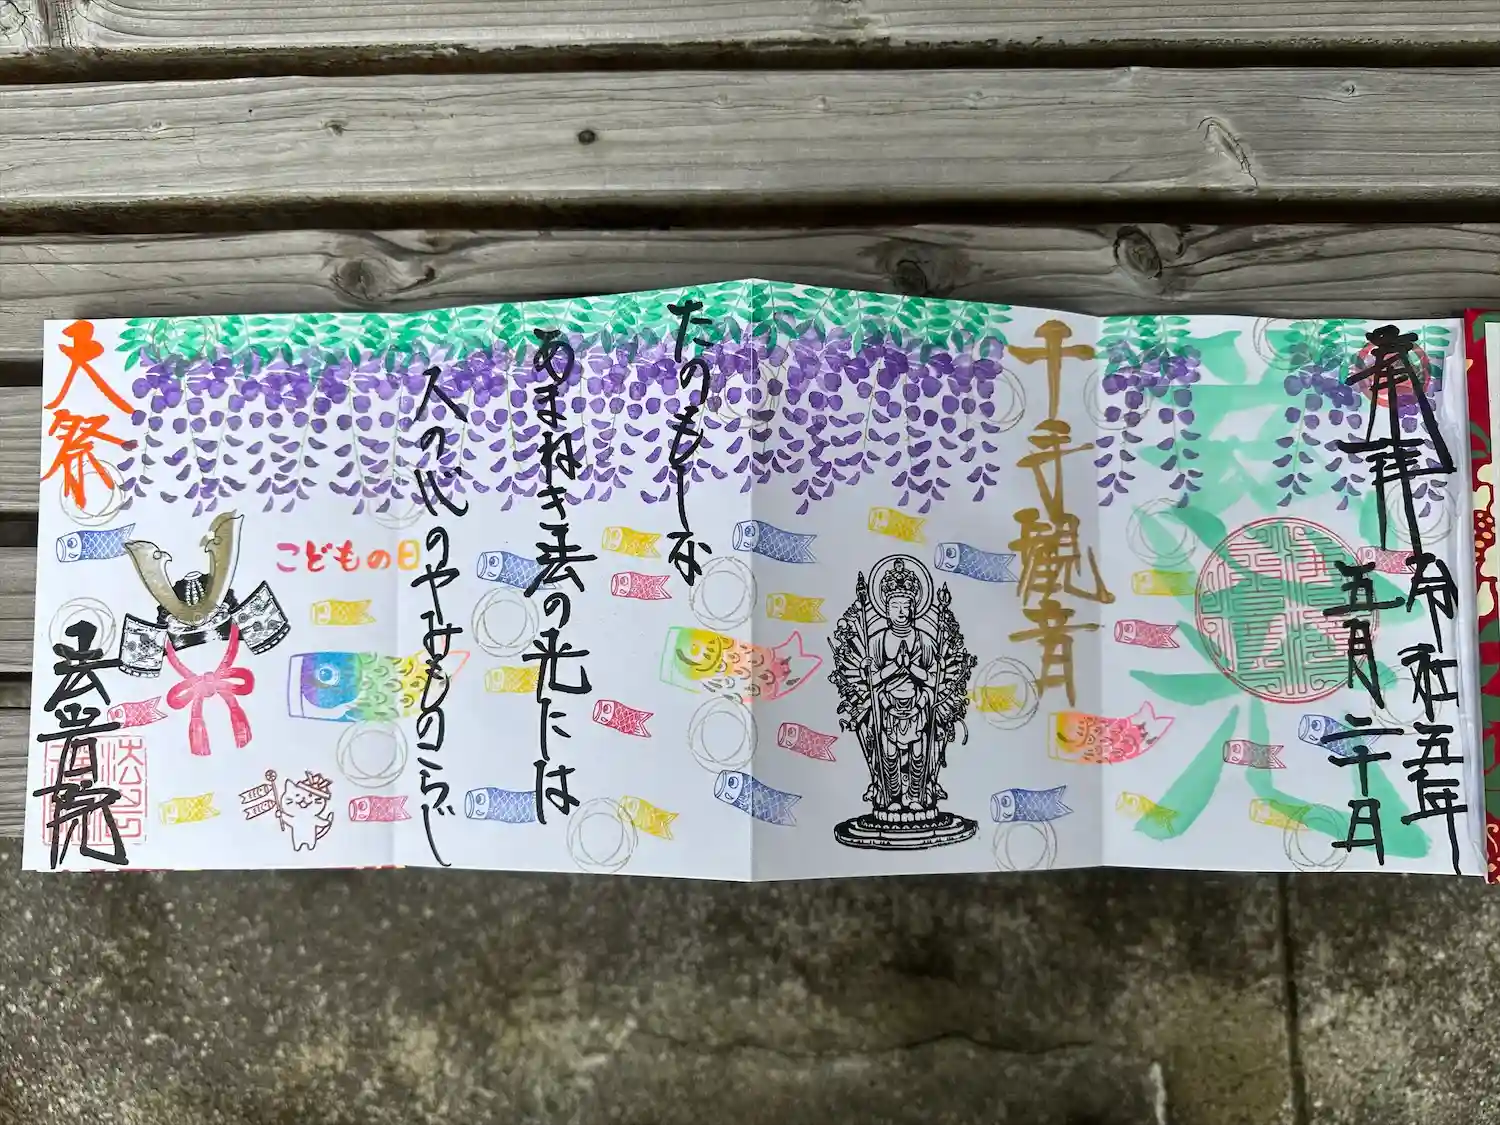 奉拝
令和五年
五月二十日
千手観音
たのもしな
あまねき法の光には
人の心のやみものこらじ
こどもの日
法音院